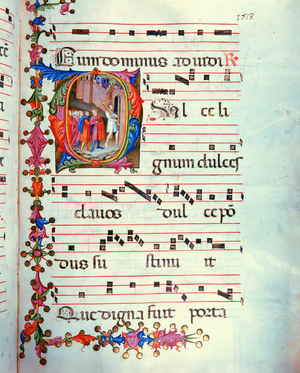 1513
Eum dominus xp̄o uidi R
al ce li
gnum dulces
clauos dul ce pō
dus su stinu it
Que digna fuit porta